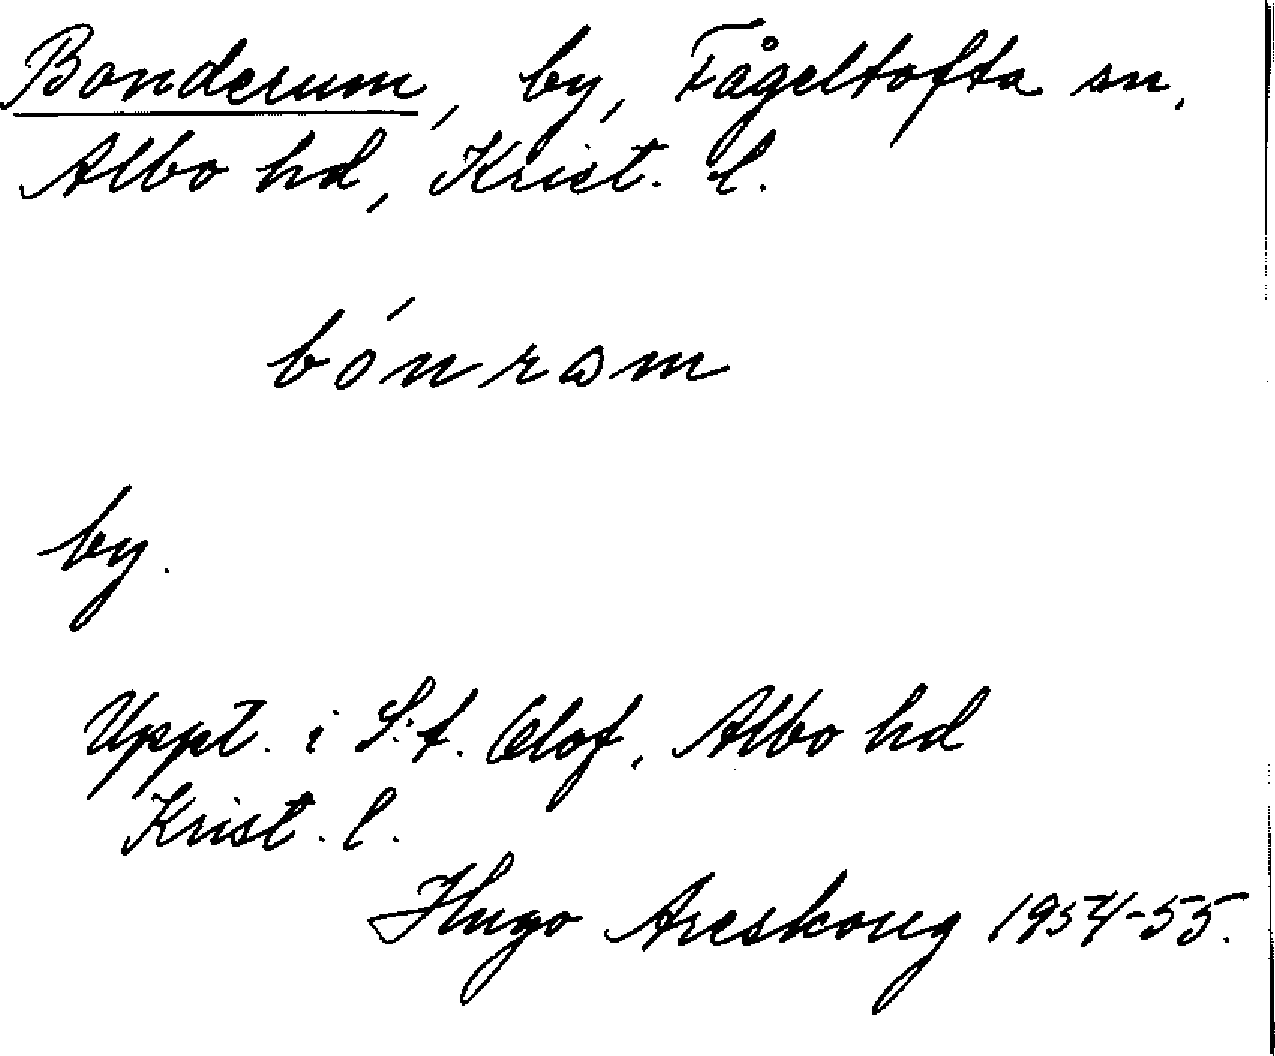 Bonderum, by, Fågeltofta sn.
Albo hd, Krist. l.
bónrɷm
by.
Uppt. i S:t. Olof, Albo hd
Krist. l.
Hugo Areskoug 1954-55.